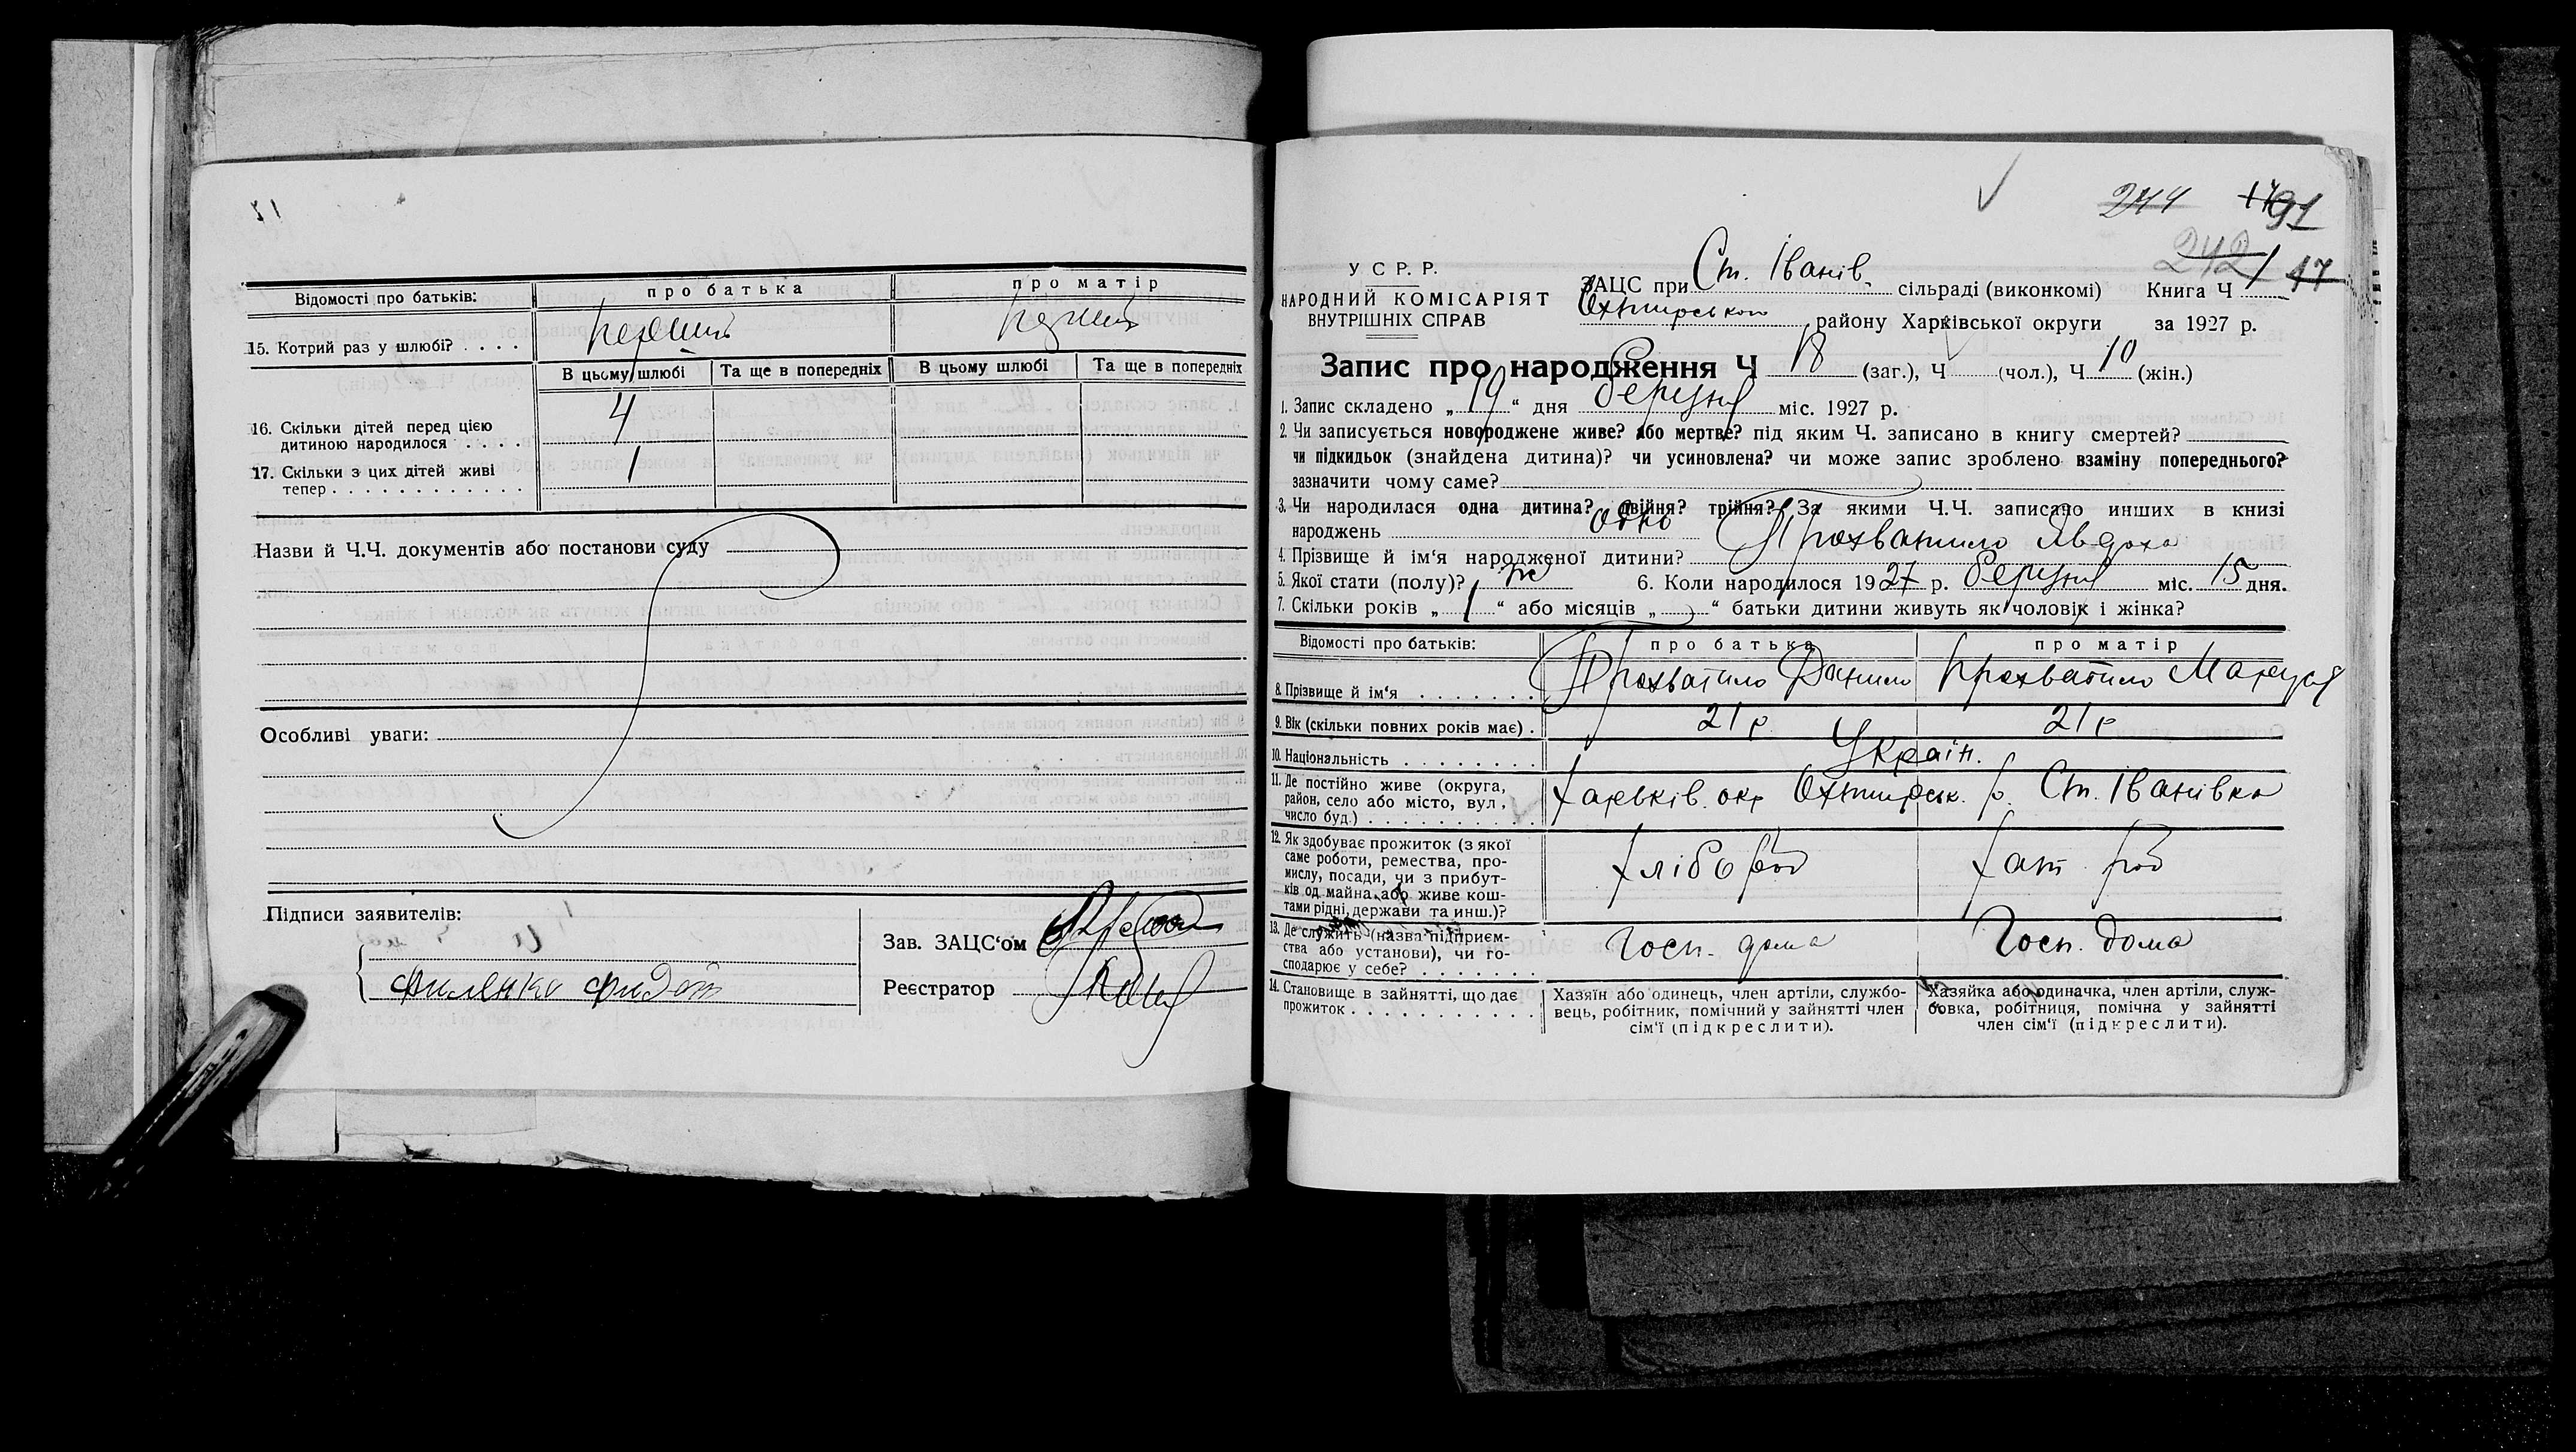 Відомості про батьків:
про батька
про матір
15. Котрий раз у шлюбі? . . . .
перший
перший
В цьому шлюбі
Та ще в попередніх
В цьому шлюбі
Та ще в попередніх
16. Скільки дітей перед цією
дитиною народилося . . . .
4
17. Скільки з цих дітей живі
тепер . . . . . . . . . . . . .
1
Назви й Ч.Ч. документів або постанови суду
Особливі уваги:
Підписи заявителів:
Зав. ЗАЦС‘ом
Реєстратор
244
91
242
1 17
У С Р. Р.
НАРОДНИЙ КОМІСАРІЯТ
ВНУТРІШНІХ СПРАВ
ЗАЦС при Ст. Іванів. сільраді (виконкомі) Книга Ч
Охтирського району Харківської округи за 1927 р.
Запис про народження Ч 18 (заг.), Ч (чол.), Ч 10 (жін.)
1. Запис складено „ 19 “ дня березня міс. 1927 р.
2. Чи записується новороджене живе? або мертве? під яким Ч. записано в книгу смертей?
чи підкидьок (знайдена дитина)? чи усиновлена? чи може запис зроблено взаміну попереднього?
зазначити чому саме?
3. Чи народилася одна дитина? двійня? трійня? За якими Ч.Ч. записано инших в книзі
народжень одно
4. Прізвище й ім‘я народженої дитини? Прохватило Явдоха
5. Якої стати (полу)? ж 6. Коли народилося 1927 р. березня міс. 15 дня.
7. Скільки років „ 1 “ або місяців „ “ батьки дитини живуть як чоловік і жінка?
Відомості про батьків:
про батька
про матір
8. Прізвище й ім‘я . . . . . . .
Прохватило Данило
Прохватило Маруся
9. Вік (скільки повних років має) .
21 р
21 р
10. Національність . . . . . . . .
Україн.
11. Де постійно живе (округа,
район, село або місто, вул.,
число буд.) . . . . . . . . . .
Харьків. окр Охтирськ. р. Ст. Іванівка
12. Як здобуває прожиток (з якої
саме роботи, ремества, про-
мислу, посади, чи з прибут-
ків од майна, або живе кош-
тами рідні, держави та инш.)?
хлібороб
хат. роб
13. Де служить (назва підприєм-
ства або установи), чи го-
сподарює у себе? . . . . . . .
Госп. дома
Госп. дома
14. Становище в зайнятті, що дає
прожиток . . . . . . . . . . .
Хазяїн або одинець, член артіли, службо-
вець, робітник, помічний у зайнятті член
сім‘ї (підкреслити).
Хазяйка або одиначка, член артіли, служ-
бовка, робітниця, помічна у зайнятті
член сім‘ї (підкреслити).